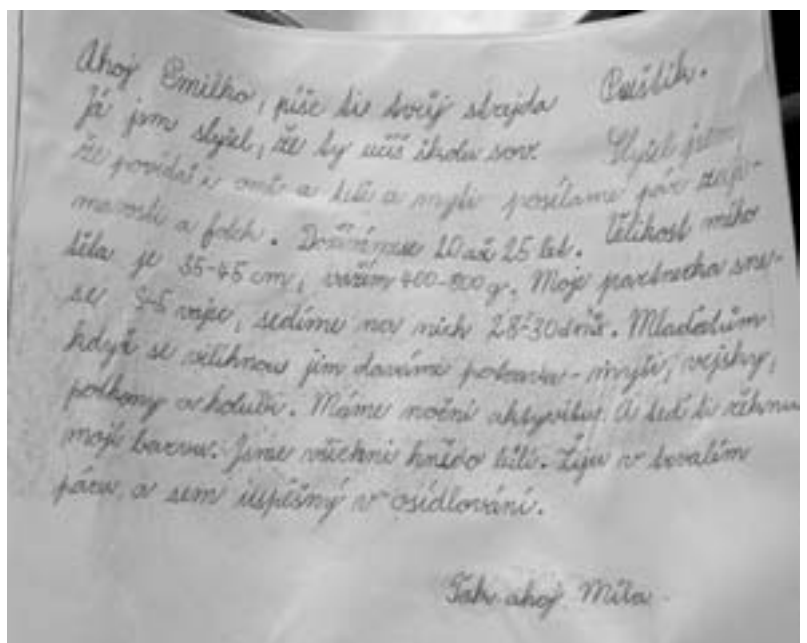 Ahoj Emilko, píše ti tvůj strejda Puštík.
Já jsem slyšel, že ty učíš školu sov. Slyšel jsem,
že povídáš o a myši posíláme pár zají-
mavostí a fotek. Dožíváme se 20 až 25 let. Velikost mého
těla je 35-45 cm, vážím 400-800g. Moje partnerka sne-
se 3-5 vajec, sedíme na nich 28-30 dnů. Mláďatům
když se vilíhnou jim daváme potravu - myši, vejsky,
potkany a holuby. Máme noční aktyvitu. A teď ti řeknu
moji barvu. Jsme všichni hnědo bílí. Žiju v trvalém
páru, a sem úspěšný v osídlování.
Tak ahoj Míla